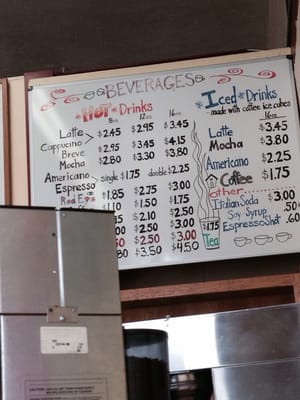 BEVERAGES
*HOT* Drinks
8oz 12oz 16oz
Latte
Cappucino > $2.45 $2.95 $3.45
Breve $2.95 $3.45 $4.15
Mocha $2.80 $3.30 $3.80
Americano single $1.75 double $2.25
Espresso
Red Eye $1.85 $2.75 $3.00
$1.75
$1.50
$2.10 $2.50
$2.50 $2.75
$2.50 $3.00
$3.50 $4.50
*Iced* Drinks
made with coffee ice cubes
16oz
Latte $3.45
Mocha $3.80
Americano $2.25
Coffee $1.75
other
Italian Soda $3.00
Soy Syrup .50
Espresso Shot .60
$1.75
Tea